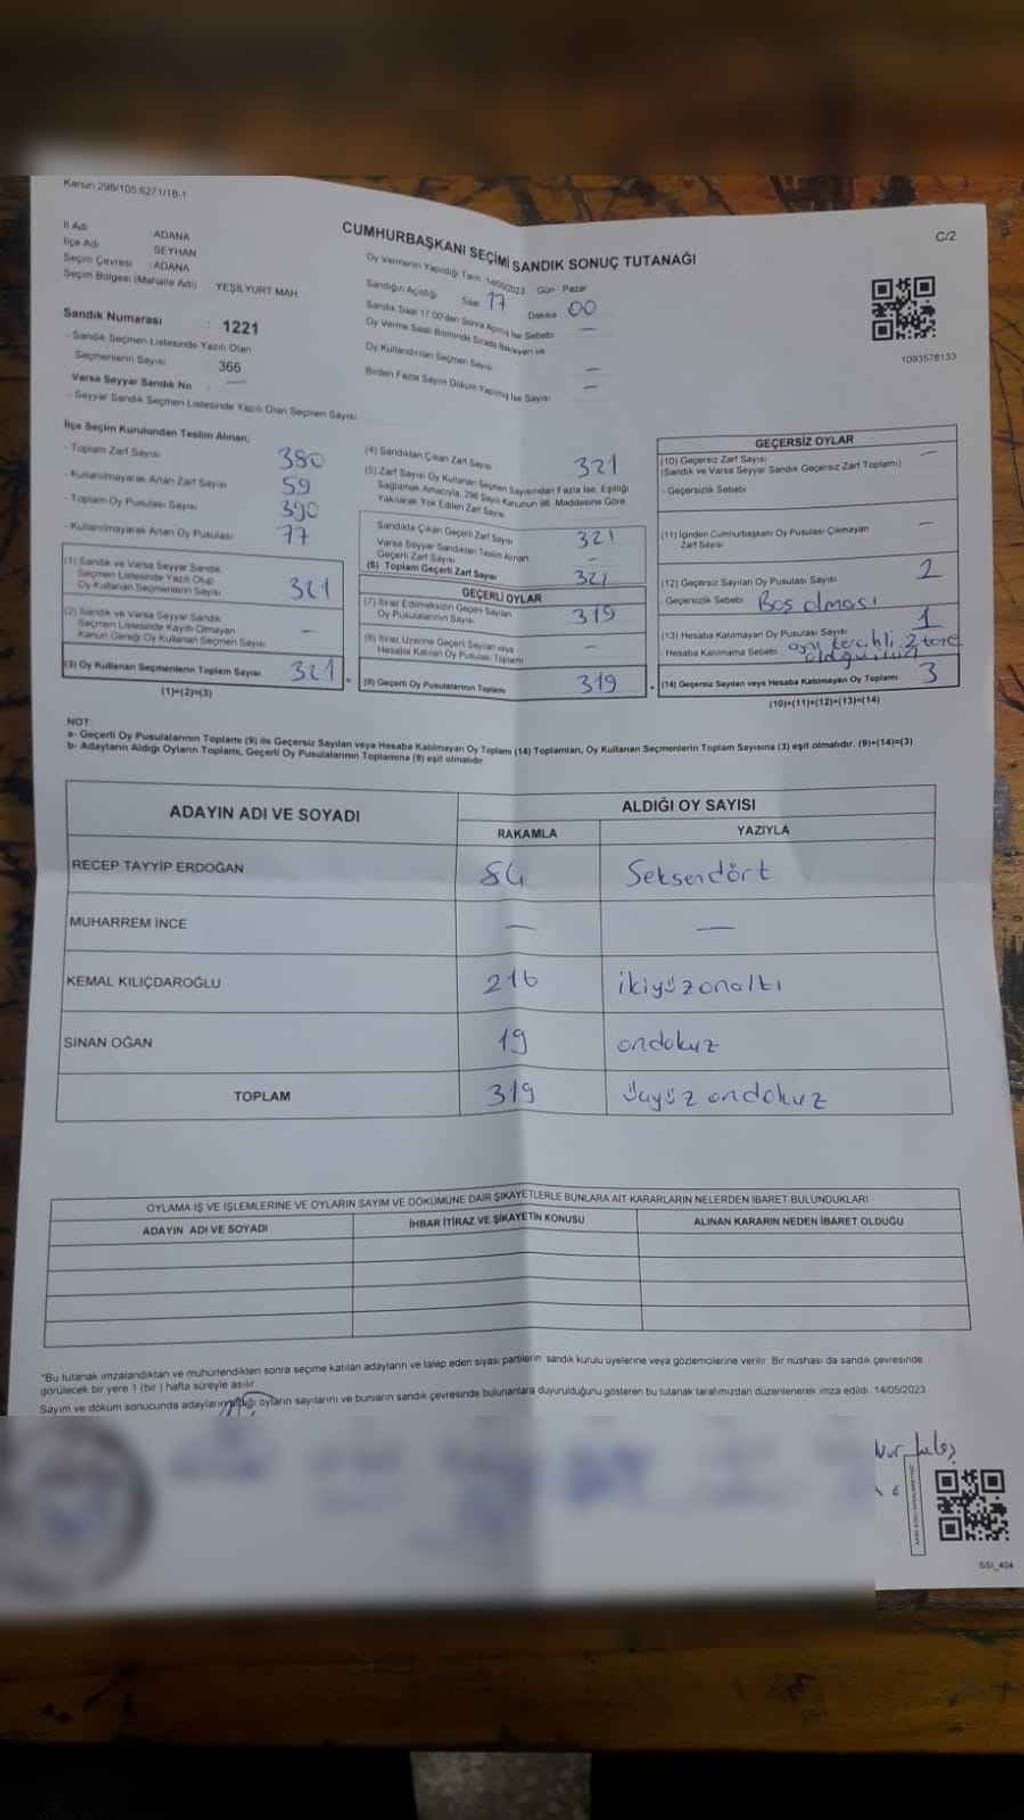 Kanun 298/105.6271/18-1
C/2
CUMHURBAŞKANI SEÇİMİ SANDIK SONUÇ TUTANAĞI
İl Adı ADANA
İlçe Adı SEYHAN
Seçim Çevresi : ADANA
Seçim Bölgesi (Mahalle Adı) YEŞİLYURT MAH.
Sandık Numarası : 1221
- Sandık Seçmen Listesinde Yazılı Olan
Seçmenlerin Sayısı 366
Varsa Seyyar Sandık No —
- Seyyar Sandık Seçmen Listesinde Yazılı Olan Seçmen Sayısı
Oy Vermenin Yapıldığı Tarih 14/05/2023 Gün : Pazar
Sandığın Açıldığı Saat 17 Dakika 00
Sandık Saat 17.00'den Sonra Açılmış İse Sebebi —
Oy Verme Saati Bitiminde Sırada Bekleyen ve
Oy Kullandırılan Seçmen Sayısı —
Birden Fazla Sayım Döküm Yapılmış İse Sayısı —
1093578133
İlçe Seçim Kurulundan Teslim Alınan;
- Toplam Zarf Sayısı 380
- Kullanılmayarak Artan Zarf Sayısı 59
- Toplam Oy Pusulası Sayısı 390
- Kullanılmayarak Artan Oy Pusulası 77
(1) Sandık ve Varsa Seyyar Sandık
Seçmen Listesinde Yazılı Olup
Oy Kullanan Seçmenlerin Sayısı 321
(2) Sandık ve Varsa Seyyar Sandık
Seçmen Listesinde Kayıtlı Olmayan
Kanun Gereği Oy Kullanan Seçmen Sayısı —
(3) Oy Kullanan Seçmenlerin Toplam Sayısı 321
(1)+(2)=(3)
(4) Sandıktan Çıkan Zarf Sayısı 321
(5) Zarf Sayısı Oy Kullanan Seçmen Sayısından Fazla İse, Eşitliği
Sağlamak Amacıyla, 298 Sayılı Kanunun 98. Maddesine Göre
Yakılarak Yok Edilen Zarf Sayısı
Sandıkta Çıkan Geçerli Zarf Sayısı 321
Varsa Seyyar Sandıktan Teslim Alınan
Geçerli Zarf Sayısı —
(6) Toplam Geçerli Zarf Sayısı 321
GEÇERLİ OYLAR
(7) İtiraz Edilmeksizin Geçerli Sayılan
Oy Pusulalarının Sayısı 319
(8) İtiraz Üzerine Geçerli Sayılan veya
Hesaba Katılan Oy Pusulası Toplamı —
(9) Geçerli Oy Pusulalarının Toplamı 319
GEÇERSİZ OYLAR
(10) Geçersiz Zarf Sayısı —
(Sandık ve Varsa Seyyar Sandık Geçersiz Zarf Toplamı)
- Geçersizlik Sebebi
(11) İçinden Cumhurbaşkanı Oy Pusulası Çıkmayan
Zarf Sayısı —
(12) Geçersiz Sayılan Oy Pusulası Sayısı 2
Geçersizlik Sebebi Boş olması
(13) Hesaba Katılmayan Oy Pusulası Sayısı 1
Hesaba Katılmama Sebebi aynı tercihli 2 tane
(14) Geçersiz Sayılan veya Hesaba Katılmayan Oy Toplamı 3
(10)+(11)+(12)+(13)=(14)
NOT:
a- Geçerli Oy Pusulalarının Toplamı (9) ile Geçersiz Sayılan veya Hesaba Katılmayan Oy Toplamı (14) Toplamları, Oy Kullanan Seçmenlerin Toplam Sayısına (3) eşit olmalıdır. (9)+(14)=(3)
b- Adayların Aldığı Oyların Toplamı, Geçerli Oy Pusulalarının Toplamına (9) eşit olmalıdır
ADAYIN ADI VE SOYADI ALDIĞI OY SAYISI
RAKAMLA YAZIYLA
RECEP TAYYİP ERDOĞAN 84 Seksendört
MUHARREM İNCE — —
KEMAL KILIÇDAROĞLU 216 ikiyüzonaltı
SİNAN OĞAN 19 ondokuz
TOPLAM 319 üçyüzondokuz
OYLAMA İŞ VE İŞLEMLERİNE VE OYLARIN SAYIM VE DÖKÜMÜNE DAİR ŞİKAYETLERLE BUNLARA AİT KARARLARIN NELERDEN İBARET BULUNDUKLARI
ADAYIN ADI VE SOYADI İHBAR İTİRAZ VE ŞİKAYETİN KONUSU ALINAN KARARIN NEDEN İBARET OLDUĞU
"Bu tutanak imzalandıktan ve mühürlendikten sonra seçime katılan adayların ve talep eden siyasi partilerin sandık kurulu üyelerine veya gözlemcilerine verilir. Bir nüshası da sandık çevresinde
görülecek bir yere 1 (bir) hafta süreyle asılır.
Sayım ve döküm sonucunda adayların aldığı oyların sayılarını ve bunların sandık çevresinde bulunanlara duyurulduğunu gösteren bu tutanak tarafımızdan düzenlenerek imza edildi. 14/05/2023
SSI_404